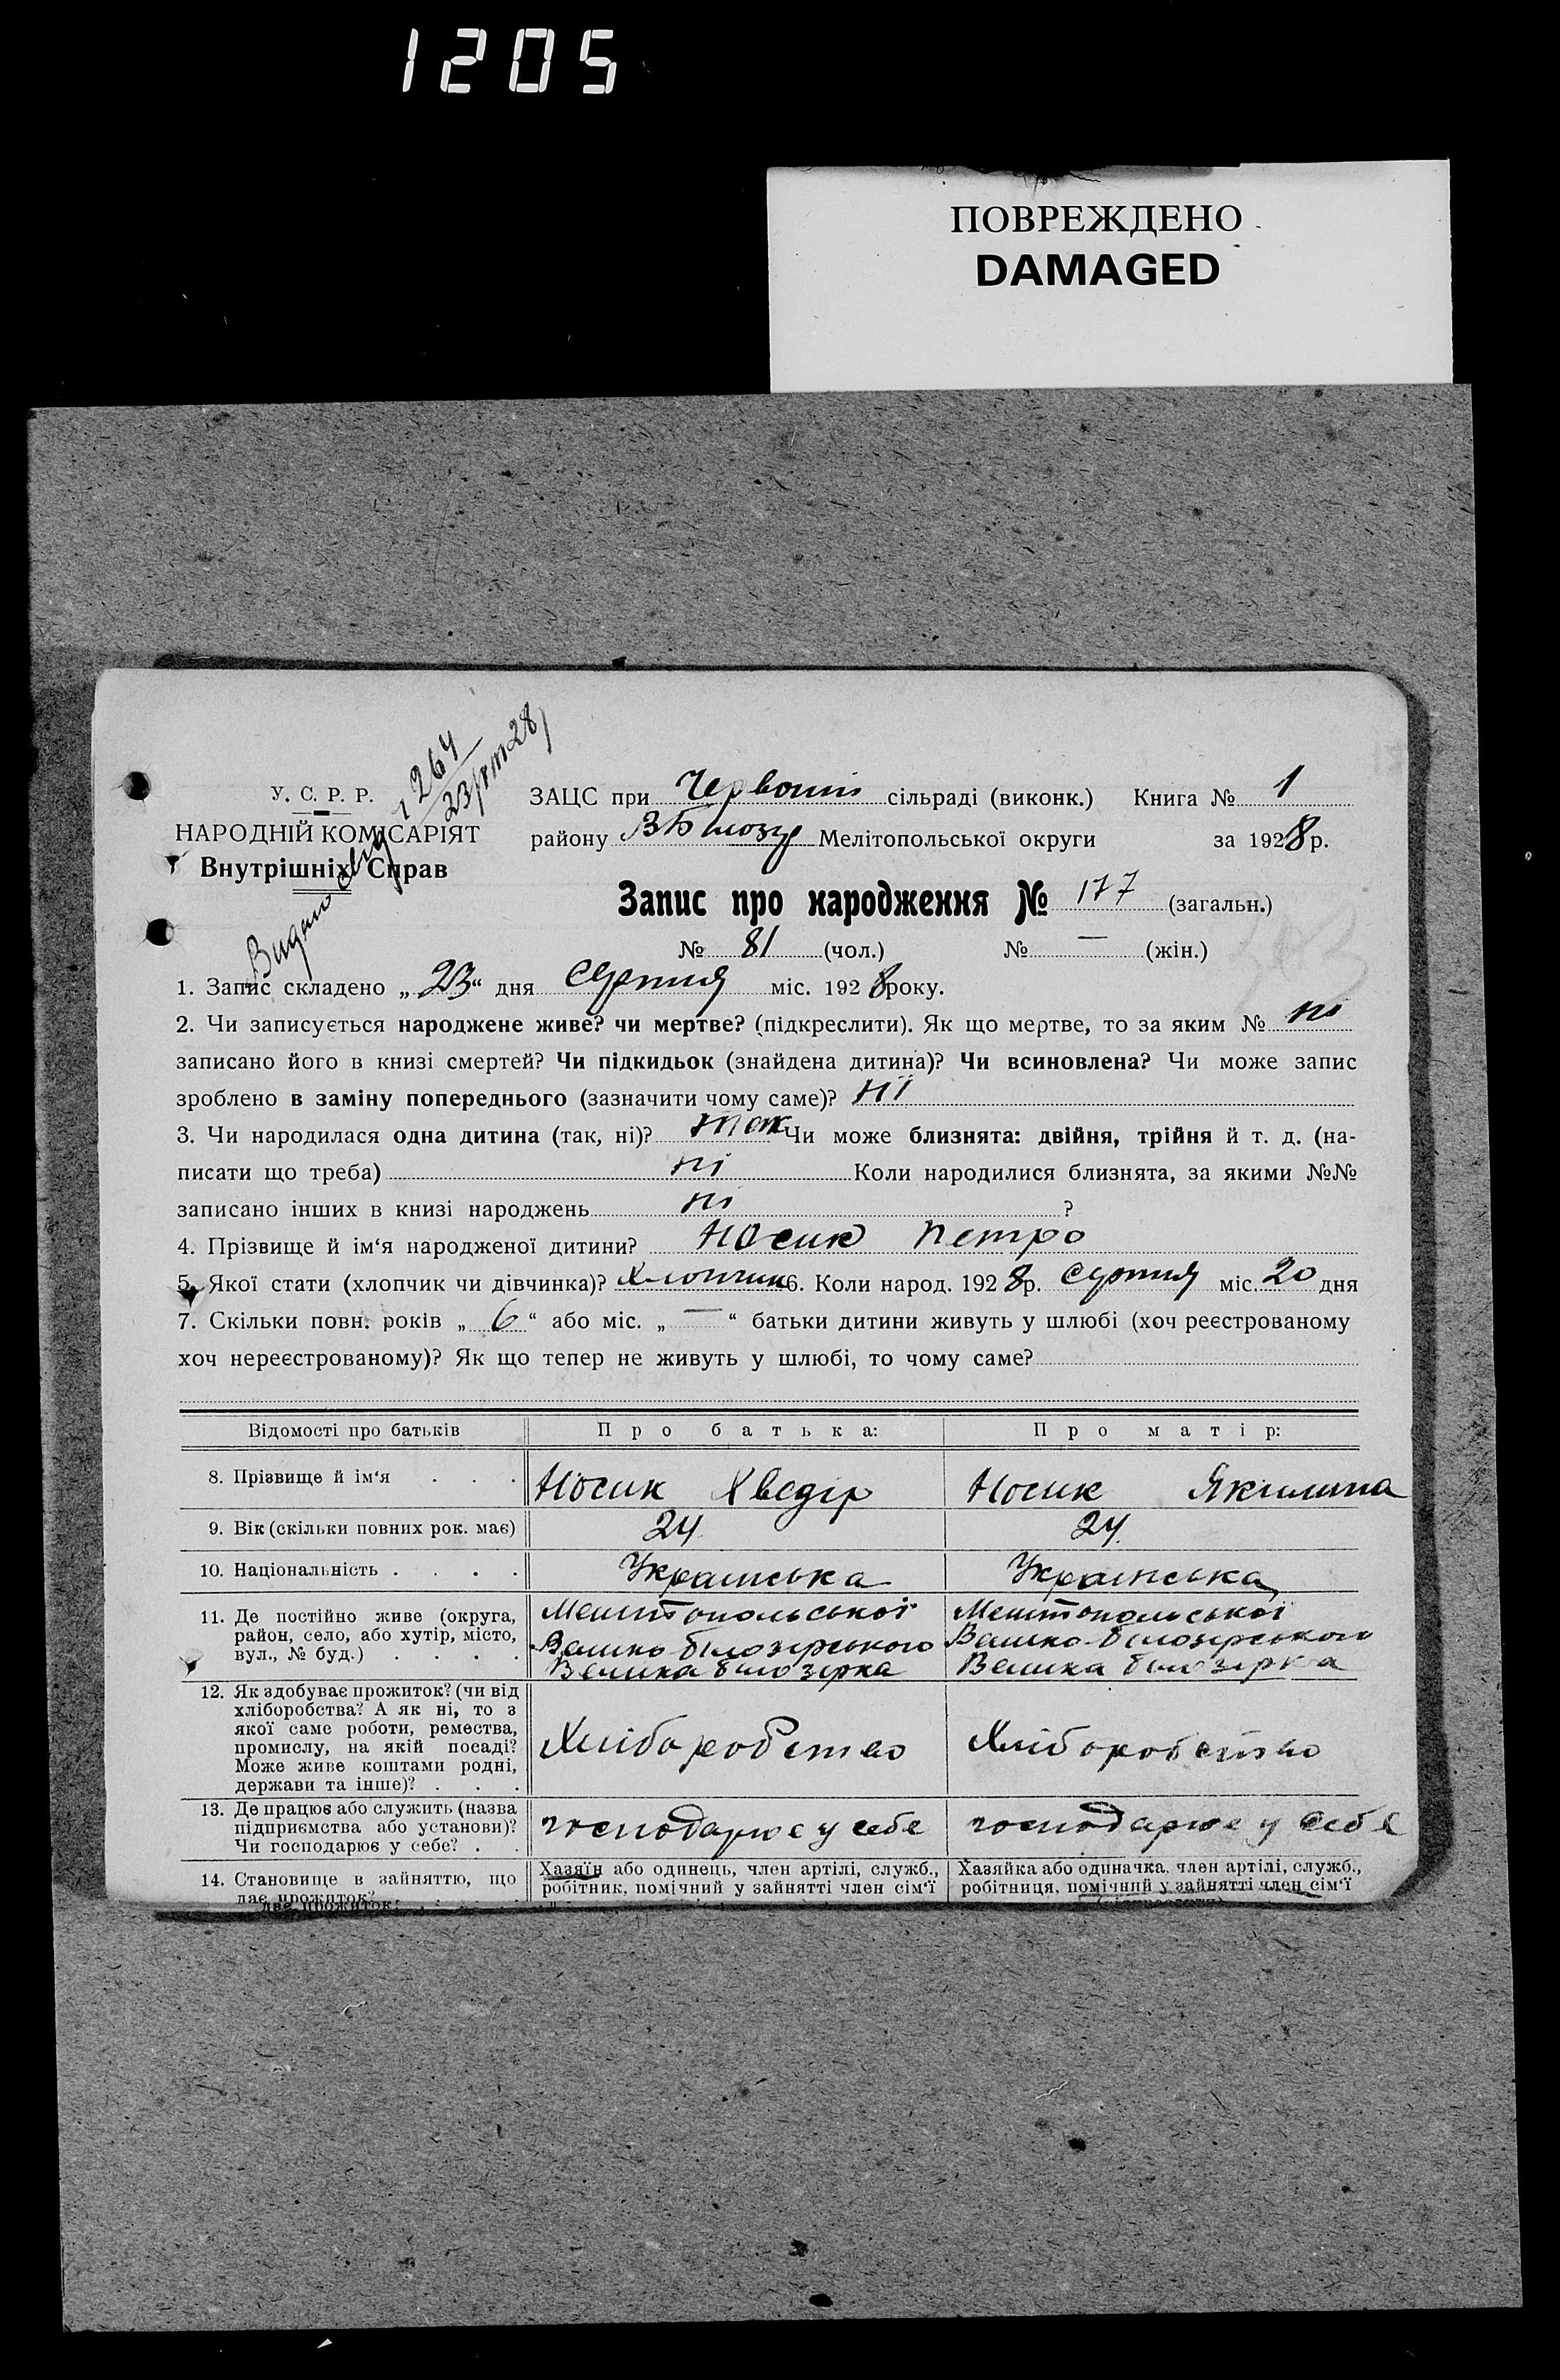 1205
ПОВРЕЖДЕНО
DAMAGED
У. С. Р. Р.
НАРОДНІЙ КОМІСАРІЯТ
Внутрішніх Справ
Видано
264
23/VIII 28
ЗАЦС при Червоній сільраді (виконк.) Книга № 1
району ВБілозер Мелітопольської округи за 1928 р.
Запис про народження № 177 (загальн.)
№ 81 (чол.) № — (жін.)
1. Запис складено „23“ дня Серпня міс. 1928 року.
2. Чи записується народжене живе? чи мертве? (підкреслити). Як що мертве, то за яким № ні
записано його в книзі смертей? Чи підкидьок (знайдена дитина)? Чи всиновлена? Чи може запис
зроблено в заміну попереднього (зазначити чому саме)? ні
3. Чи народилася одна дитина (так, ні)? так Чи може близнята: двійня, трійня й т. д. (на-
писати що треба) ні Коли народилися близнята, за якими №№
записано інших в книзі народжень ні ?
4. Прізвище й ім‘я народженої дитини? Носик Петро
5. Якої стати (хлопчик чи дівчинка)? Хлопчик 6. Коли народ. 1928 р. Серпня міс. 20 дня
7. Скільки повн. років „6“ або міс. „—“ батьки дитини живуть у шлюбі (хоч реєстрованому
хоч нереєстрованому)? Як що тепер не живуть у шлюбі, то чому саме?
Відомості про батьків Про батька: Про матір:
8. Прізвище й ім‘я . . . Носик Хведір Носик Якилина
9. Вік (скільки повних рок. має) 24 24
10. Національність . . . . Українська Українська
11. Де постійно живе (округа,
район, село, або хутір, місто,
вул., № буд.) . . . .
Мелітопольської
Велико-білозірського
Велика білозірка
Мелітопольської
Велико-білозірського
Велика білозірка
12. Як здобуває прожиток? (чи від
хліборобства? А як ні, то з
якої саме роботи, ремества,
промислу, на якій посаді?
Може живе коштами родні,
держави та інше)? . . .
Хліборобство
Хліборобство
13. Де працює або служить (назва
підприємства або установи)?
Чи господарює у себе? . .
господарює у себе
господарює у себе
14. Становище в зайняттю, що
дає прожиток?
Хазяїн або одинець, член артілі, служб.,
робітник, помічний у зайнятті член сім‘ї
Хазяйка або одиначка, член артілі, служб.,
робітниця, помічний у зайнятті член сім‘ї